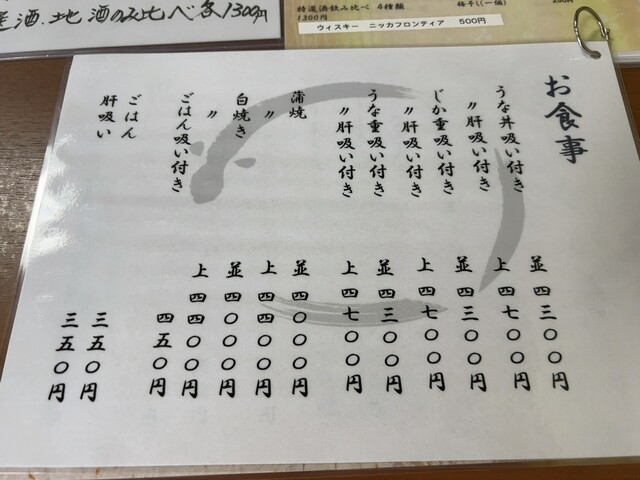 地酒のみ比べ各1300円
特選酒飲み比べ 4種類
1300円
ウィスキー ニッカフロンティア 500円
お食事
うな丼吸い付き 並 四三〇〇円
〃肝吸い付き 上 四七〇〇円
じか重吸い付き 並 四三〇〇円
〃肝吸い付き 上 四七〇〇円
うな重吸い付き 並 四三〇〇円
〃肝吸い付き 上 四七〇〇円
蒲焼 並 四〇〇〇円
〃 上 四四〇〇円
白焼き 並 四〇〇〇円
〃 上 四四〇〇円
ごはん吸い付き 四五〇円
ごはん 三五〇円
肝吸い 三五〇円